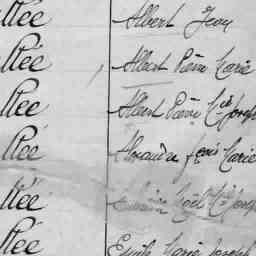 llée Albert Jean
llée Albert Pierre Marie
llée Albert Pierre Mie Joseph
llée Alexandre Marie
llée Noël Joseph
llée Emile Marie Joseph